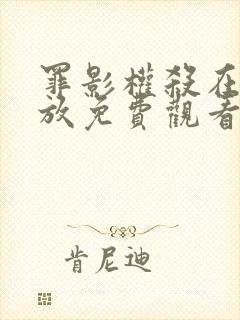 罪影權殺在
放免費觀看
肯尼迪